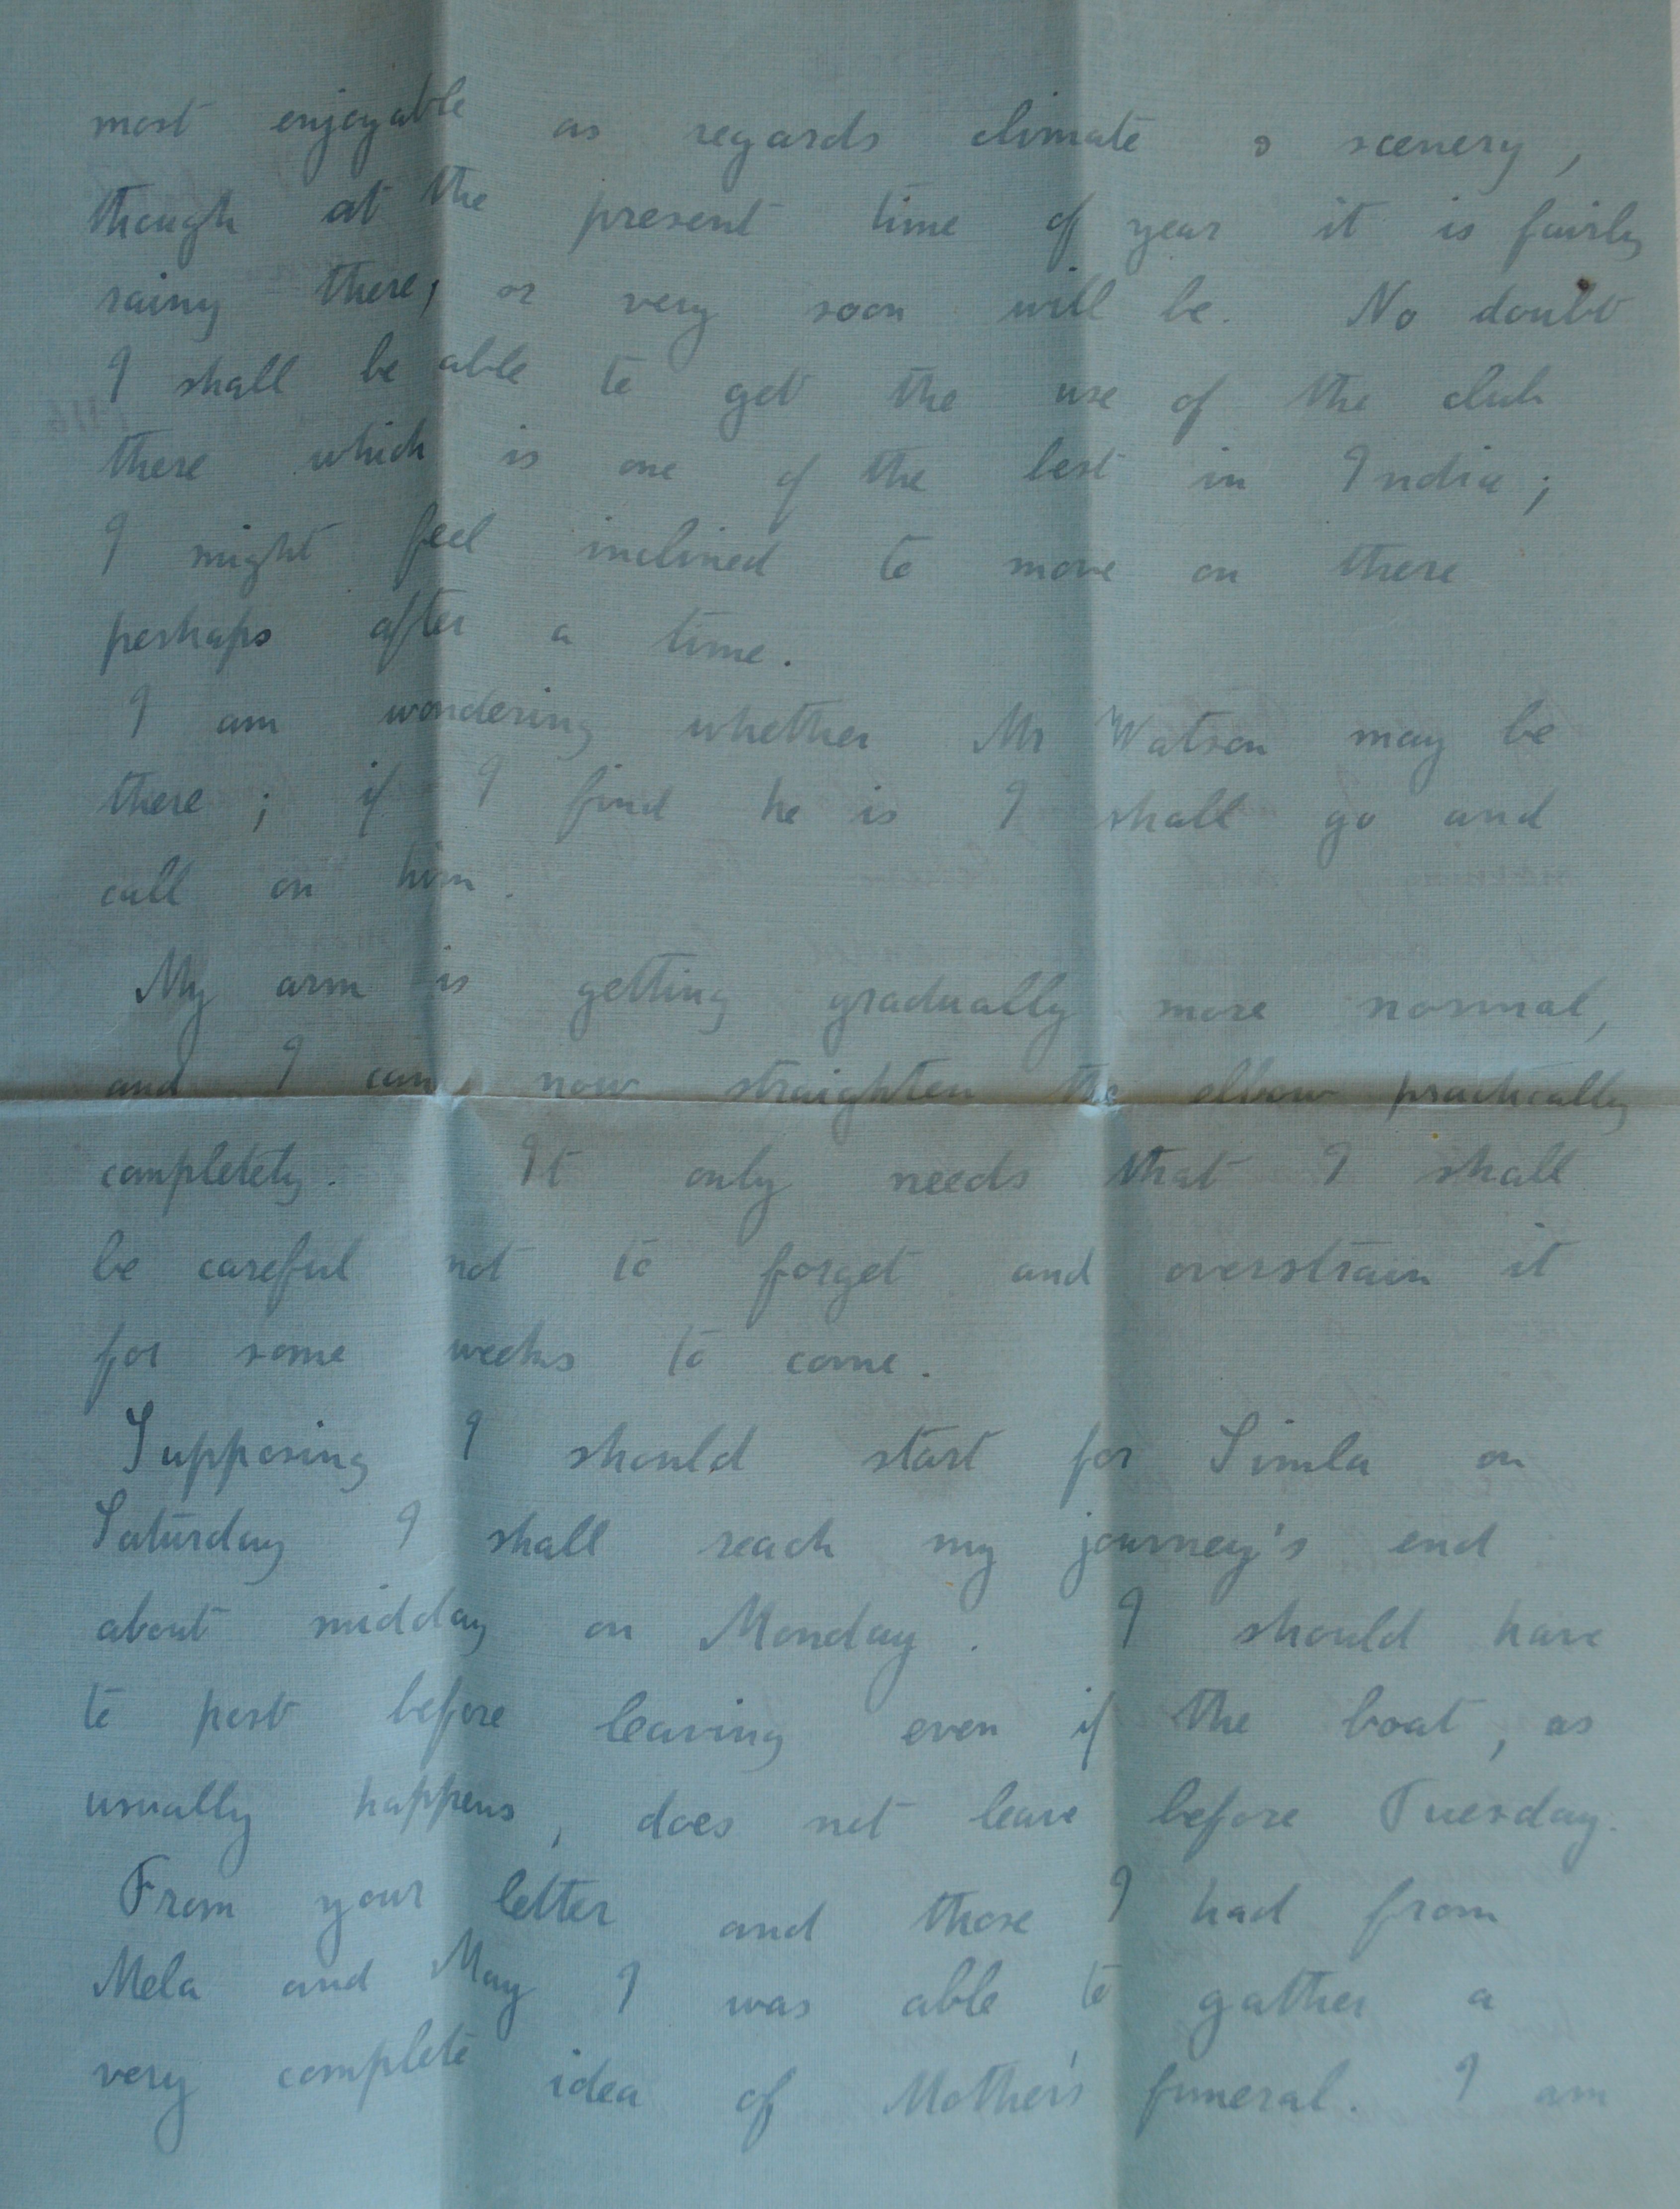 most enjoyable as regards climate & scenery,
though at the present time of year it is fairly
rainy there, or very soon will be. No doubt
I shall be able to get the use of the club
there which is one of the best in India;
I might feel inclined to move on there
perhaps after a time.
I am wondering whether Mr Watson may be
there; if I find he is I shall go and
call on him.
My arm is getting gradually more normal,
and I can now straighten the elbow practically
completely. It only needs that I shall
be careful not to forget and overstrain it
for some weeks to come.
Supposing I should start for Simla on
Saturday I shall reach my journey's end
about midday on Monday. I should have
to post before leaving even if the boat, as
usually happens, does not leave before Tuesday.
From your letter and those I had from
Mela and May I was able to gather a
very complete idea of Mother's funeral. I am